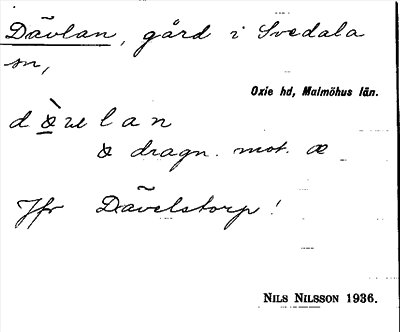 Dävlan, gård i Svedala
sn,
Oxie hd, Malmöhus län.
lan
dragn. mot. æ
Jfr Dävelstorp!
NILS NILSSON 1936.